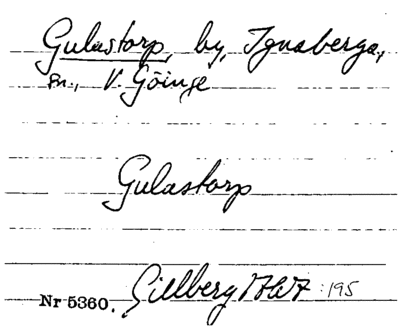 Gulastorp, by, Ignaberga,
sn., V. Göinge
Gulastorp
Nr 5360. Gillberg 1767 :195